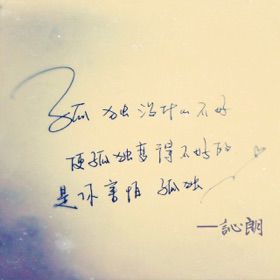 孤独没什么不好
使孤独变得不好的
是你害怕孤独
——訫朗